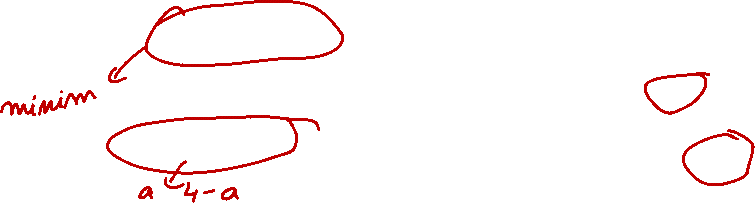 minim
a 4-a